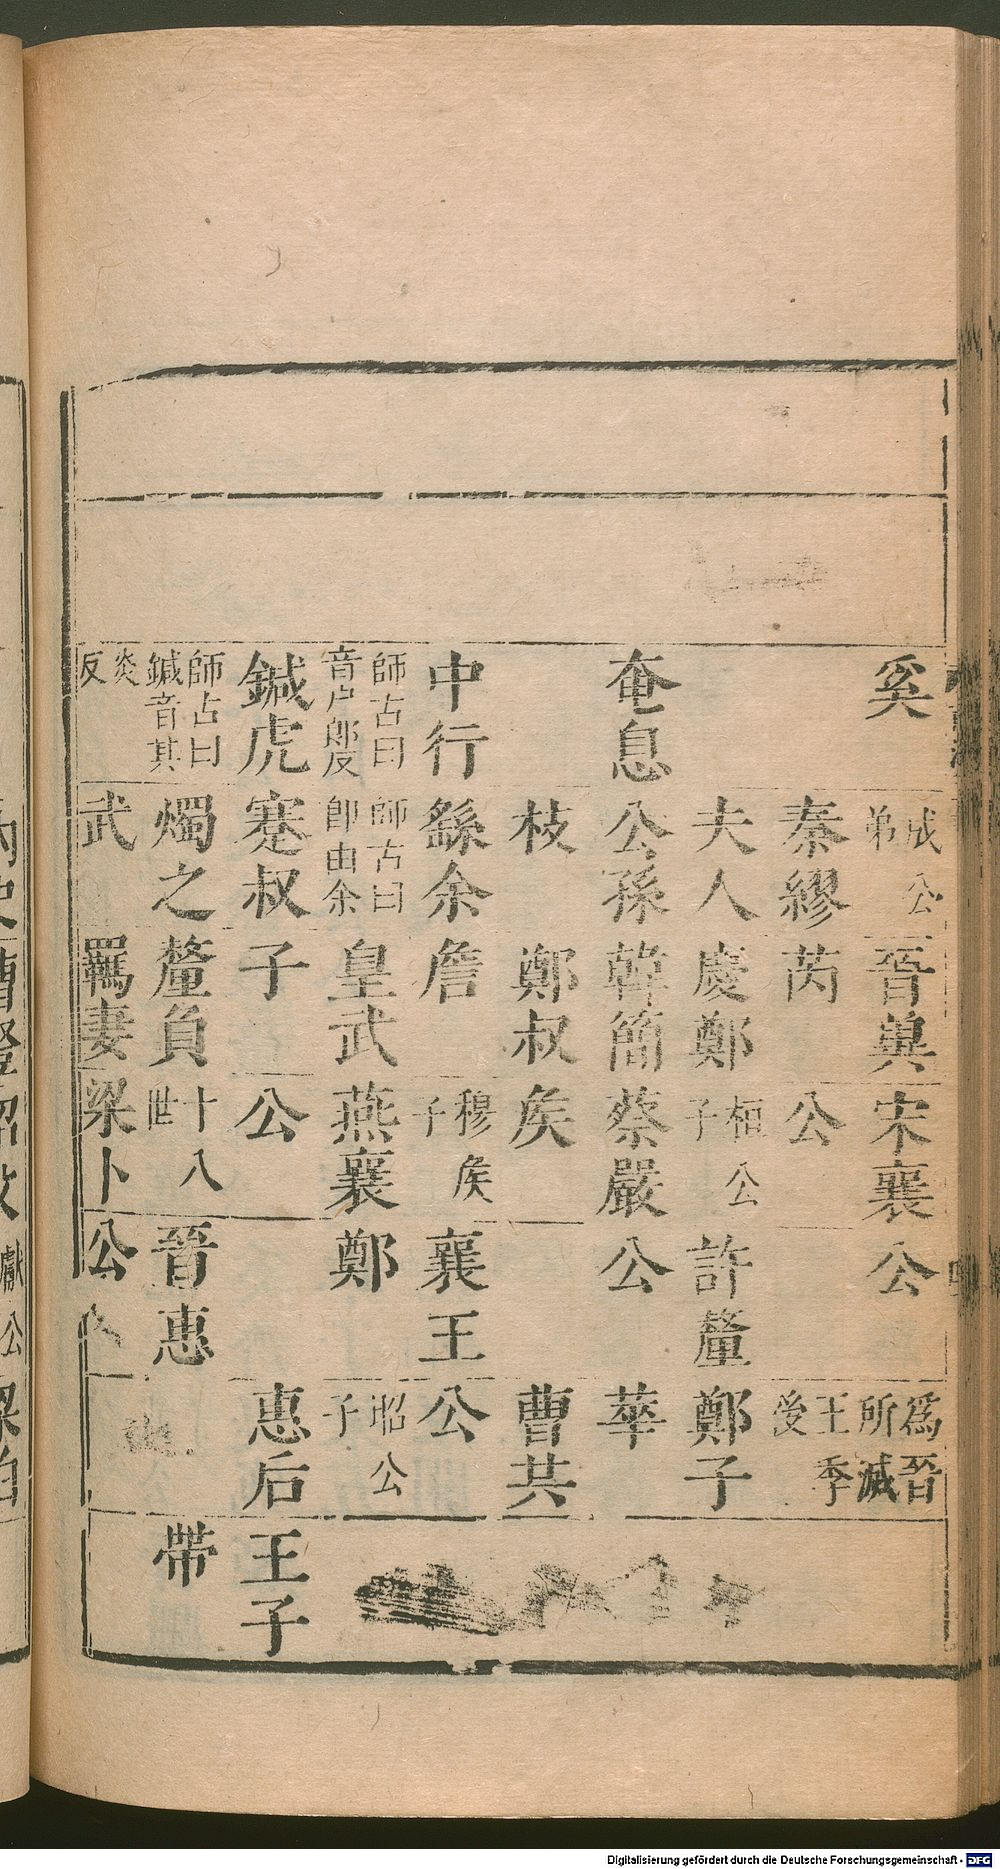 奚
成公
弟
晉冀
宋襄
公
爲晉
所滅
秦繆
芮
公
王季
後
夫人
慶鄭
桓公
子
許釐
鄭子
奄息
公孫
韓簡
蔡嚴
公
華
枝
鄭叔
矦
曹共
中行
繇余
詹
穆矦
子
襄王
公
師古曰
音戶郎反
師古曰
卽由余
皇武
燕襄
鄭
昭公
子
鍼虎
蹇叔
子
公
惠后
王子
師古曰
鍼音其
燭之
釐負
十八
世
晉惠
帶
炎
反
武
羈妻
梁卜
公
Digitalisierung gefördert durch die Deutsche Forschungsgemeinschaft - DFG